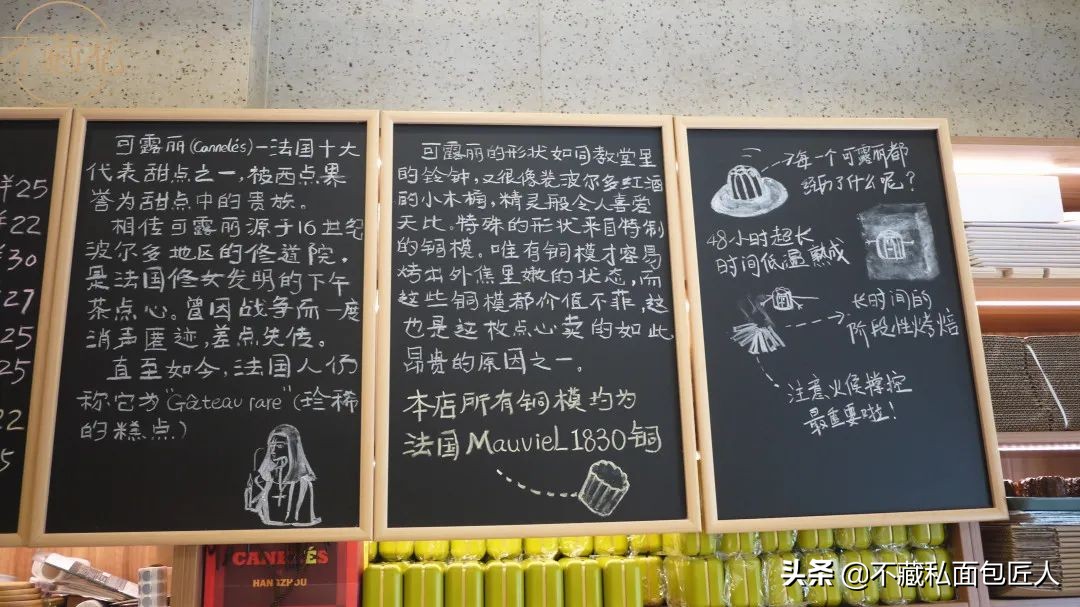 ¥25
¥22
¥30
27
25
25
22
5
可露丽(Cannelés)一法国十大
代表甜点之一,被西点界
誉为甜点中的贵族。
相传可露丽源于16世纪
波尔多地区的修道院,
是法国修女发明的下午
茶点心。曾因战争而一度
消声匿迹,差点失传。
直至如今,法国人仍
称它为"Gâteau rare"(珍稀
的糕点)
可露丽的形状如同教堂里
的铃钟,又很像装波尔多红酒
的小木桶,精灵般令人喜爱
天比。特殊的形状来自特制
的铜模。唯有铜模才容易
烤出外焦里嫩的状态,而
这些铜模都价值不菲,这
也是这枚点心卖的如此
昂贵的原因之一。
本店所有铜模均为
法国MauvieL1830铜
每一个可露丽都
经历了什么呢?
48小时超长
时间低温熟成
长时间的
阶段性烤焙
注意火候掌控
最重要啦!
CANELÉS
HANGZHOU
不藏私
头条@不藏私面包匠人